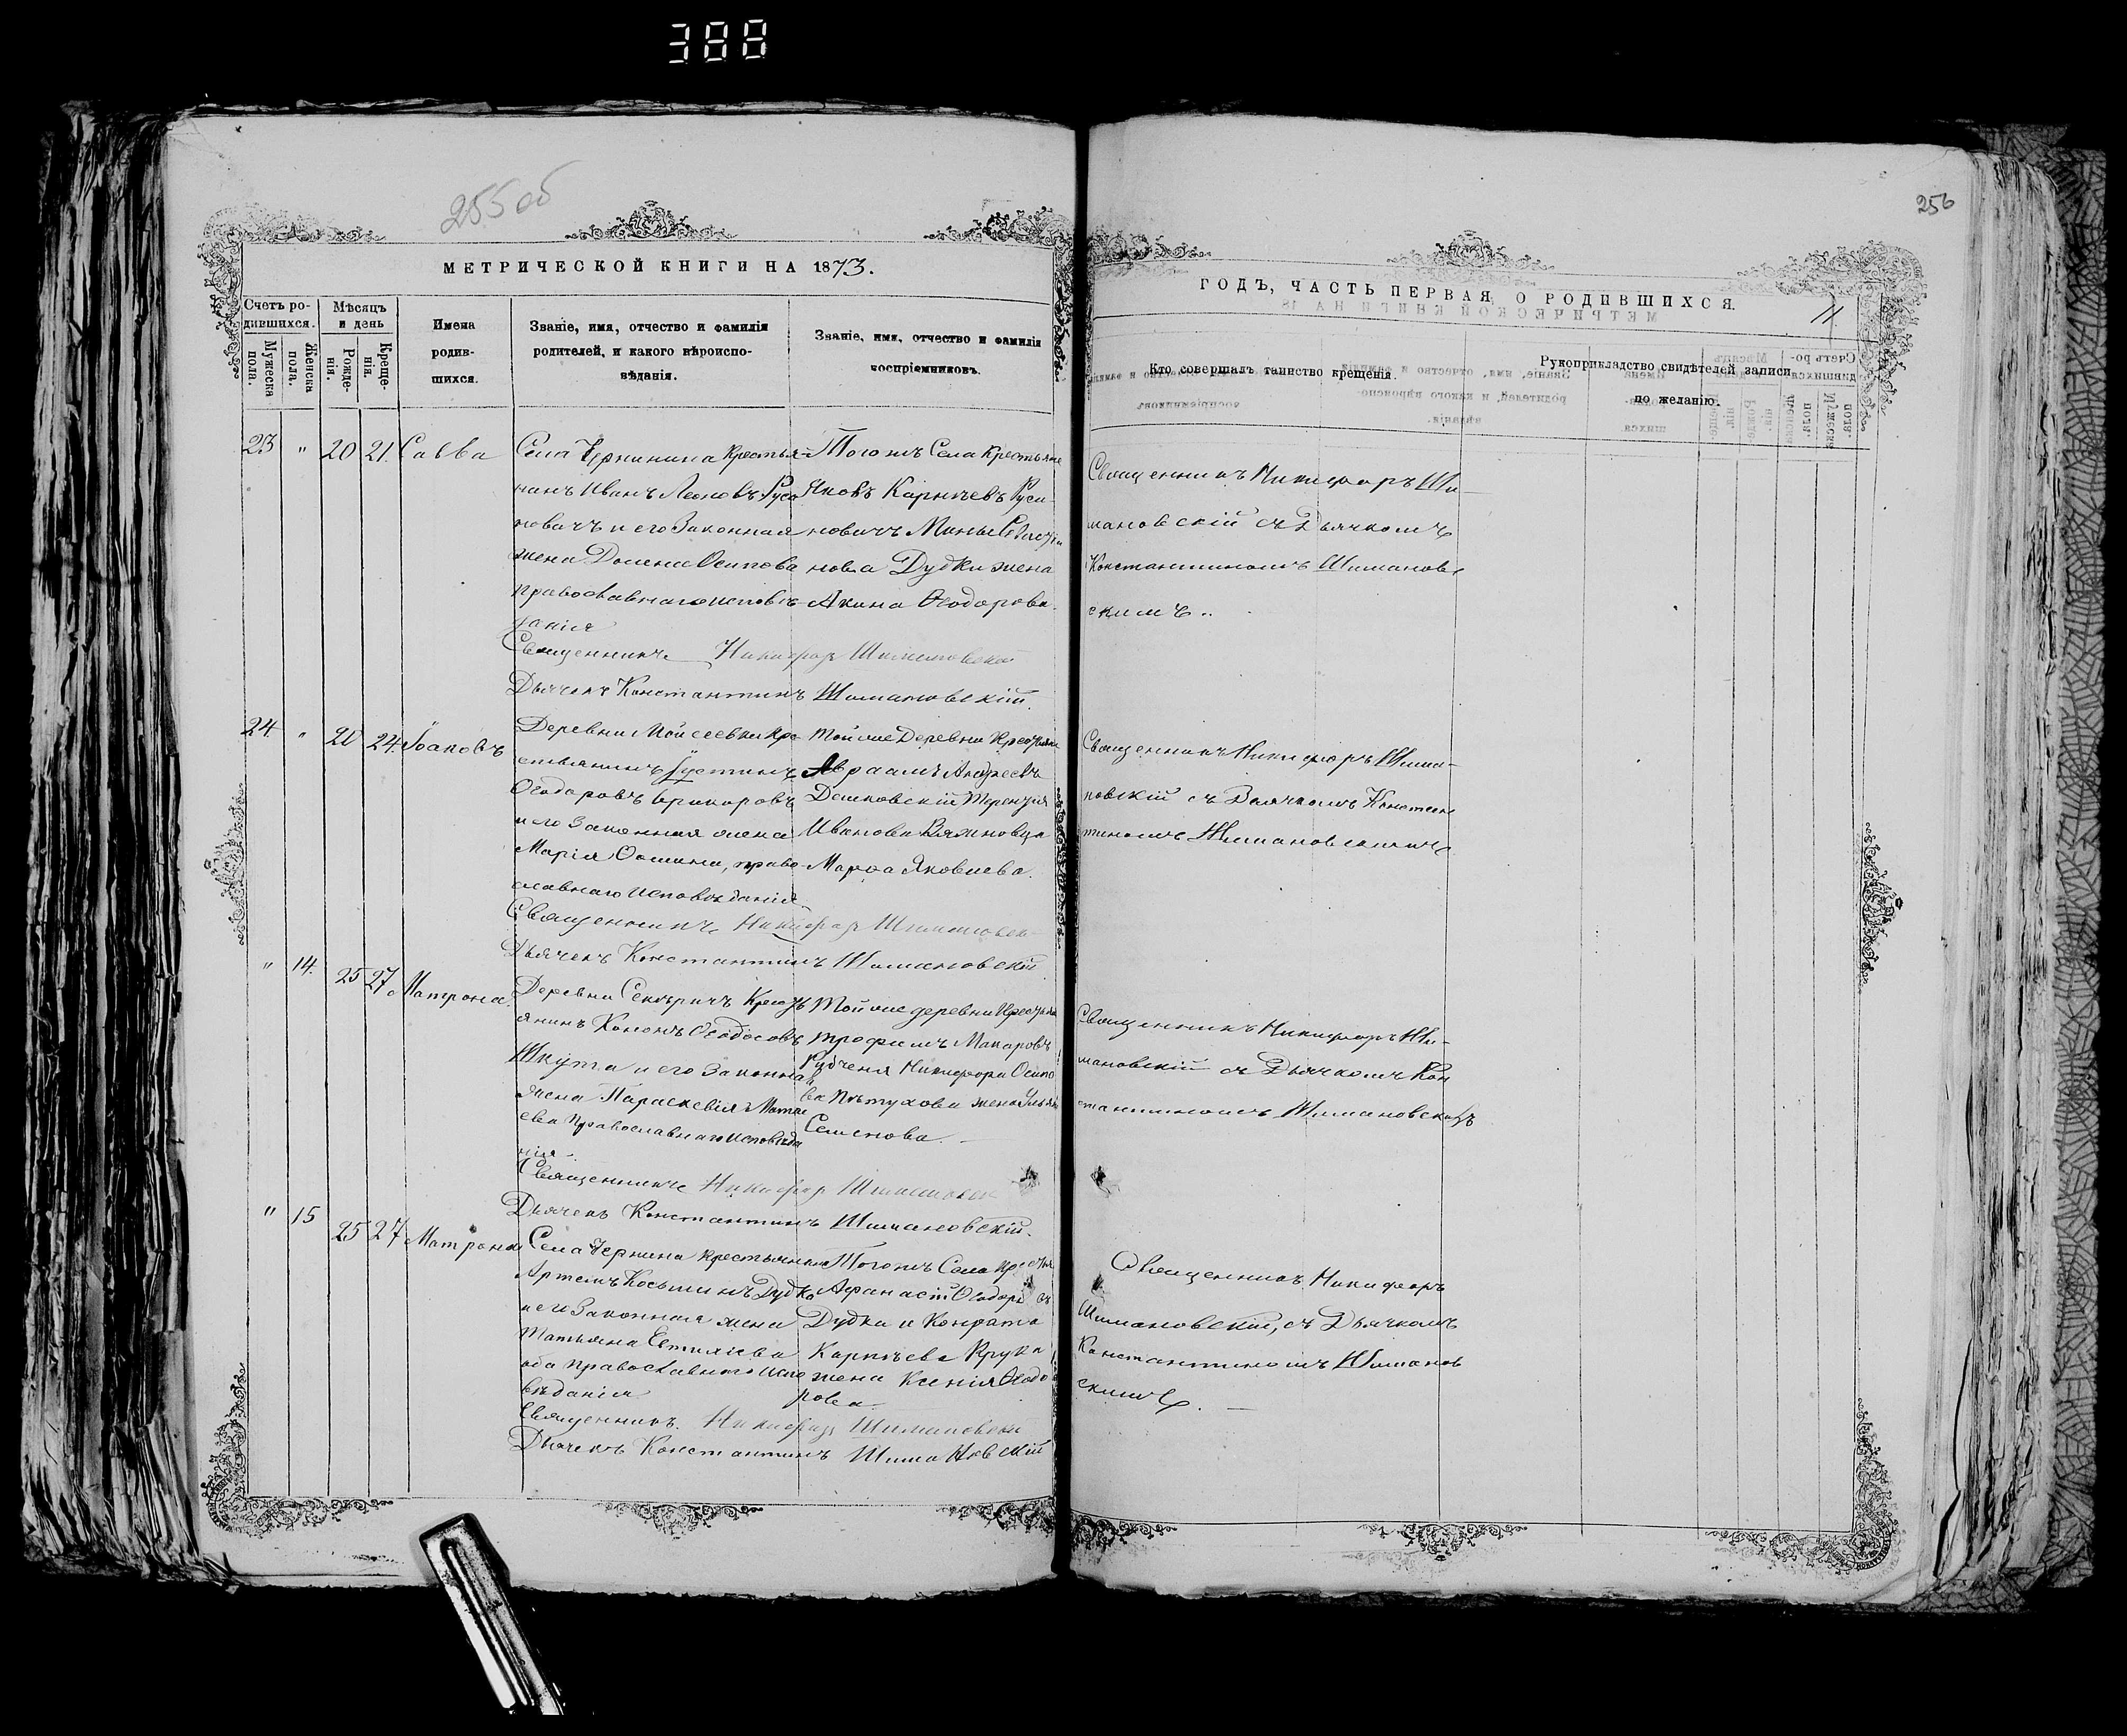 388
255об
256
МЕТРИЧЕСКОЙ КНИГИ НА 1873.
Счетъ ро-
дившихся.
Мужеска
пола.
Женска
пола.
Мѣсяцъ
и день
Рожде-
нія.
Креще-
нія.
Имена
родив-
шихся.
Званіе, имя, отчество и фамилія
родителей, и какого вѣроиспо-
вѣданія.
Званіе, имя, отчество и фамилія
воспріемниковъ.
23 " 20 21. Савва
Села Чернинина Крестья-
нинъ Иванъ Леоновъ Руси
новичъ и его Законная
жена Домена Осипова
православнаго исповѣ
данія
Тогожъ Села Крестьяне
Яковъ Карпѣевъ Руси-
новичъ Мины
нова Дудки жена
Акина Ѳеодорова.
Священникъ Никифор Шимановскій
Дьячекъ Константинъ Шимановскій.
24. " 20 24. Іоаковъ
Деревни Мойсеевки Кре
стьянинъ Іустинъ
Ѳеодоровъ
и его Законная жена
Марія Фомина, право-
славнаго исповѣданія
Тойже Деревни Крестьяне
Авраамъ Андреевъ
Дешковскій Терентія
Иванова
Марѳа Яковлева.
Священникъ Никифор Шимановск
Дьячекъ Константинъ Шимановскій.
" 14. 25 27 Матрона.
Деревни Секеричъ Кресть
янинъ Кононъ Ѳеодосовъ
Шкута и его Законная
жена Параскевія Матѳе
ева Православнаго исповѣда
нія.
Тойже деревни Крестьяне
Трофимъ Макаровъ
Рудченя Никифора Осипо
ва Пѣтухова жена
Семенова.
Священникъ Никифор Шимановск
Дьячекъ Константинъ Шимановскій.
" 15 25 27 Матрона
Села Чернина Крестьянинъ
Артемъ Косьминъ Дудко
и его Законная жена
Татьяна Евтихіева
оба православнаго испо
вѣданія
Тогожъ Села Крестья
Аѳанасій Ѳеодоровъ
Дудка и Конрата
Карпѣева Крука
жена Ксенія Ѳеодо
рова.
Священникъ. Никифор Шимановск
Дьячекъ Константинъ Шимановскій
ГОДЪ, ЧАСТЬ ПЕРВАЯ, О РОДИВШИХСЯ.
11.
Кто совершалъ таинство крещенія.
Рукоприкладство свидѣтелей записи
по желанію.
Священникъ Никифоръ Ши-
мановскій съ Дьячкомъ
Константиномъ Шиманов
скимъ..
Священникъ Никифоръ Шима-
новскій съ Дьячкомъ Констан
тиномъ Шимановскимъ
Священникъ Никифоръ Ши-
мановскій съ Дьячкомъ Кон
стантиномъ Шимановскимъ
Священникъ Никифоръ
Шимановскій, съ Дьячкомъ
Константиномъ Шиманов
скимъ.